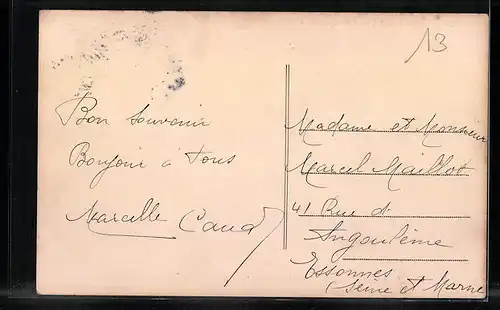 13
Bon souvenir
Bonjour à Tous
Marcelle
Madame et Monsieur
Marcel Maillot
41 Rue d
Angoulême
Essonnes
(Seine et Marne